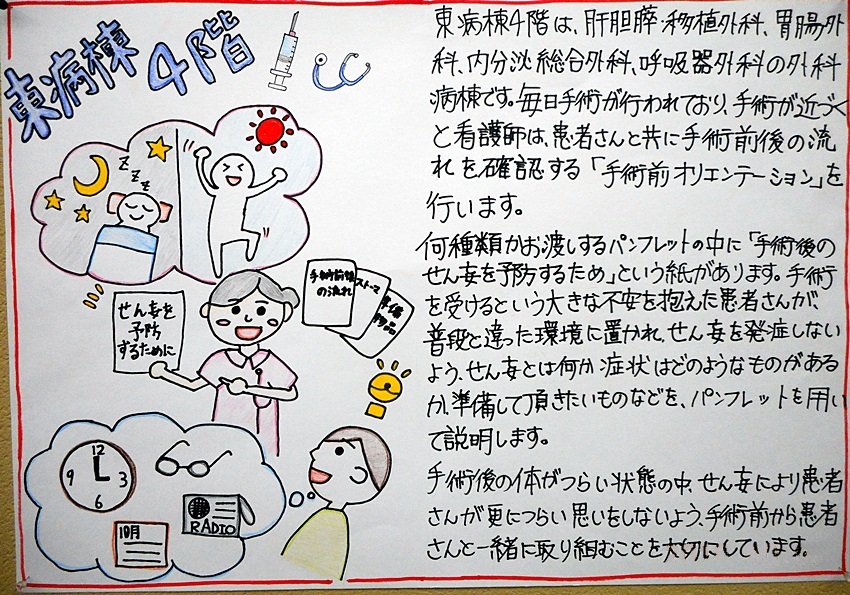 東病棟4階
東病棟4階は、肝胆膵・移植外科、胃腸外
科、内分泌総合外科、呼吸器外科の外科
病棟です。毎日手術が行われており、手術が近づく
と看護師は、患者さんと共に手術前後の流
れを確認する「手術前オリエンテーション」を
行います。
何種類かお渡しするパンフレットの中に「手術後の
せん妄を予防するため」という紙があります。手術
を受けるという大きな不安を抱えた患者さんが、
普段と違った環境に置かれ、せん妄を発症しない
よう、せん妄とは何か症状はどのようなものがある
か、準備して頂きたいものなどを、パンフレットを用い
て説明します。
手術後の体がつらい状態の中、せん妄により患者
さんが更につらい思いをしないよう、手術前から患者
さんと一緒に取り組むことを大切にしています。
z z z z
せん妄を
予防
するために
手術前後
の流れ
ストーマ
準備
物品
12
9
3
6
RADIO
10月